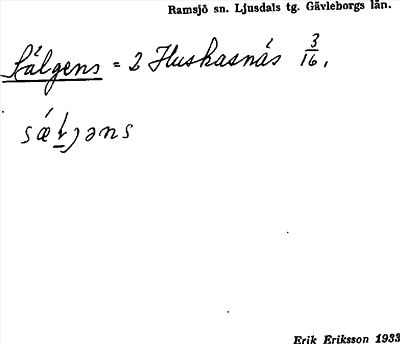 Ramsjö sn. Ljusdals tg. Gävleborgs län.
Sälgens = 2 Huskasnäs 3/16.
sǽḷjəns
Erik Eriksson 1933